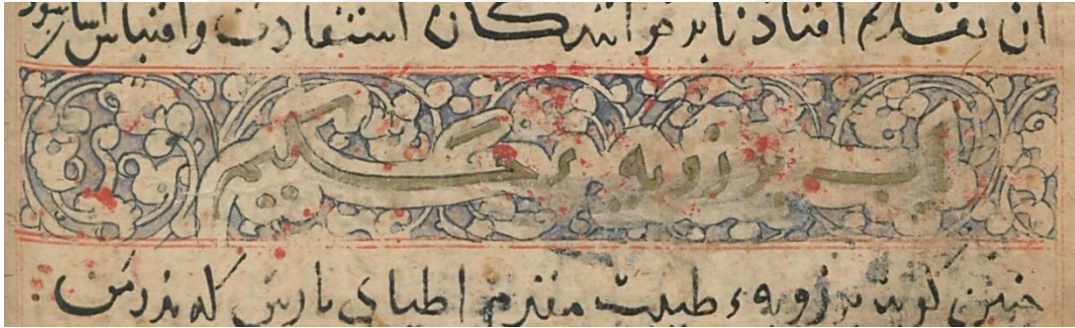 آن تقدیم افتاد تا بر خوانندکان استفادت و اقتباس اسان شود
باب برزویهء حکیم
جنین کوید برزویهء طبیب مقدم اطبای بارس که بدر من